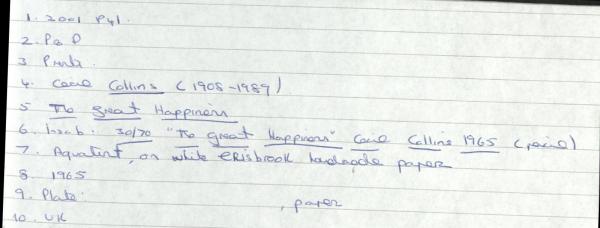 1. 2001 Pyl.
2. P & D
3. Prints.
4. Cecil Collins (1908-1989)
5 The Great Happiness
6. Inscb: 30/70 "The great Happiness" Cecil Collins 1965 (pencil)
7. Aquatint, on white CRISBROOK handmade paper
8. 1965
9. Plate: , paper
10. UK